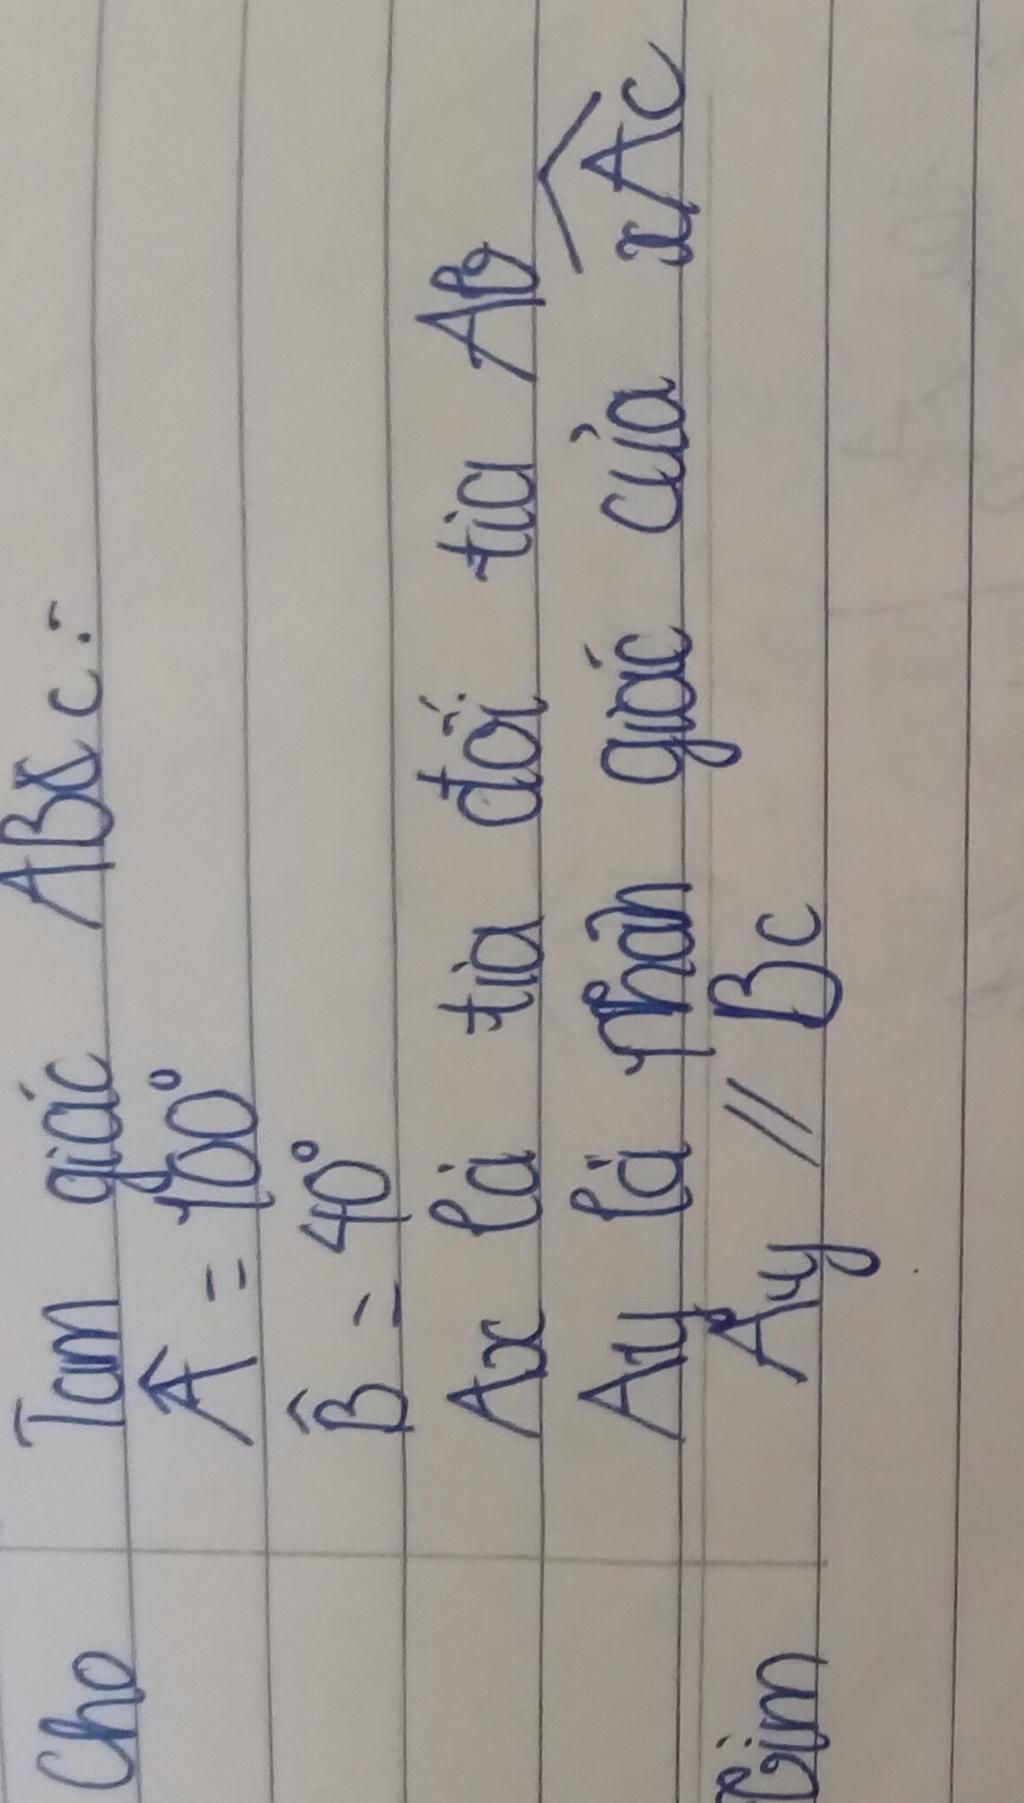 Cho Tam giác ABC:
Â = 100°
B̂ = 40°
Ax là tia đối tia AB
Ay là Phân giác của xAC
Ay // BC